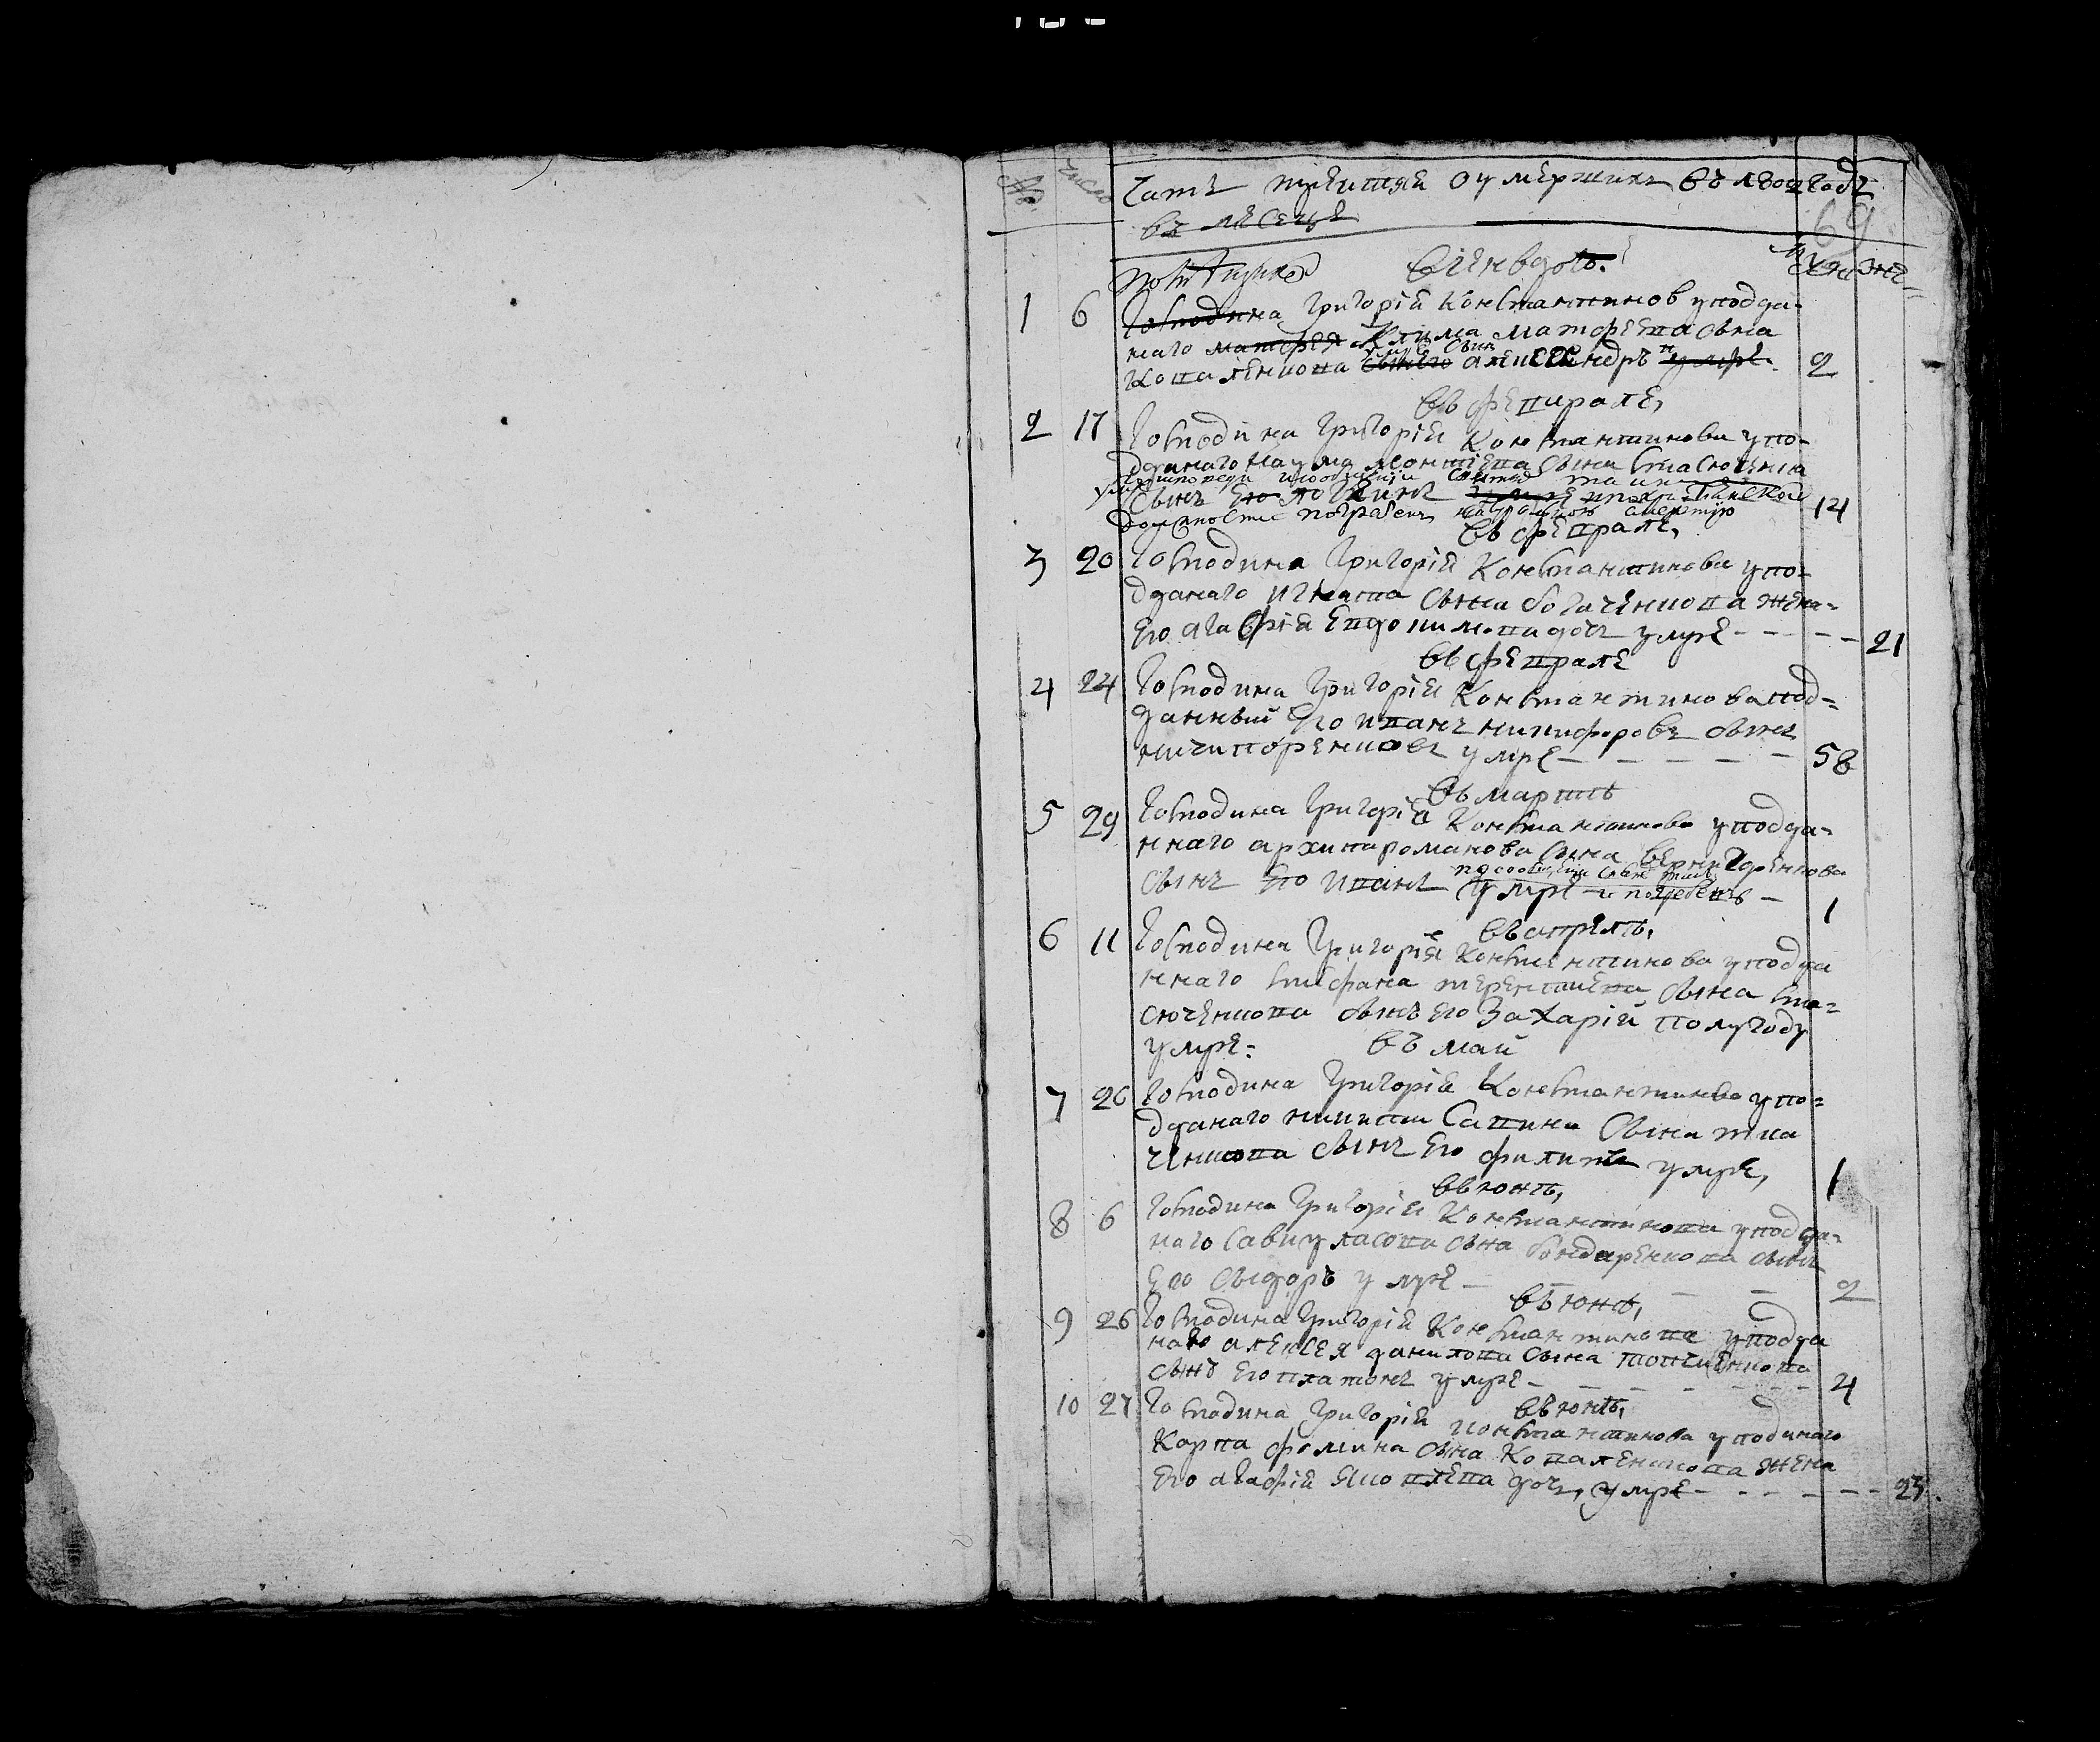 № число Часть третия о умерших въ году
въ месеце
69
генваръ. муж же
1 6 Господина Григория Константинов у подда-
наго Матфея Клима Матфеева сына
Коваленкова умре сын Александръ умре. 2
въ феврале,
2 17 Господина Григория Константинова у по-
дданаго Наума сына Стасюченка
сынъ его Логвинъ
должности погребен смертую 14
въ феврале,
3 20 Господина Григория Константинова у по-
дданаго Игната сына Богаченкова жена
его Агафия Евдокимова дочь умре - - - - - 21
въ феврале
4 24 Господина Григория Константинова под=
данный его Иванъ Никифоровъ сынъ
Ничипоренковъ умре - - - - - 58
въ мартѣ
5 29 Господина Григория Константинова у подда=
ннаго Архипа Романова сына Вернигоренкова
сынъ его Иванъ умре и погребенъ - 1
въ апрелѣ,
6 11 Господина Григория Константинова уподда
ннаго Стефана Терентиева сына Ста=
сюченкова сынъ его Захарий полугоду
умре: въ май
7 26 Господина Григория Константинова у по=
дданаго Никиты Савина сына Тка
ченкова сынъ его Филипъ умре, 1
въ юнѣ,
8 6 Господина Григория Константинова у подда=
наго Савы Уласова сына Бондаренкова сынъ
его Сыдоръ умре - - - 2
въ юнѣ,
9 26 Господина Григорий Константинова у подда
наго Алексея Данилова сына
сынъ его Платонъ умре - - - - - - - 4
въ юнѣ,
10 27 Господина Григория Константинова у поданаго
Карпа Фомина сына Коваленкова жена
его Агафия Яковлева дочь, умре - - - - - - 25.